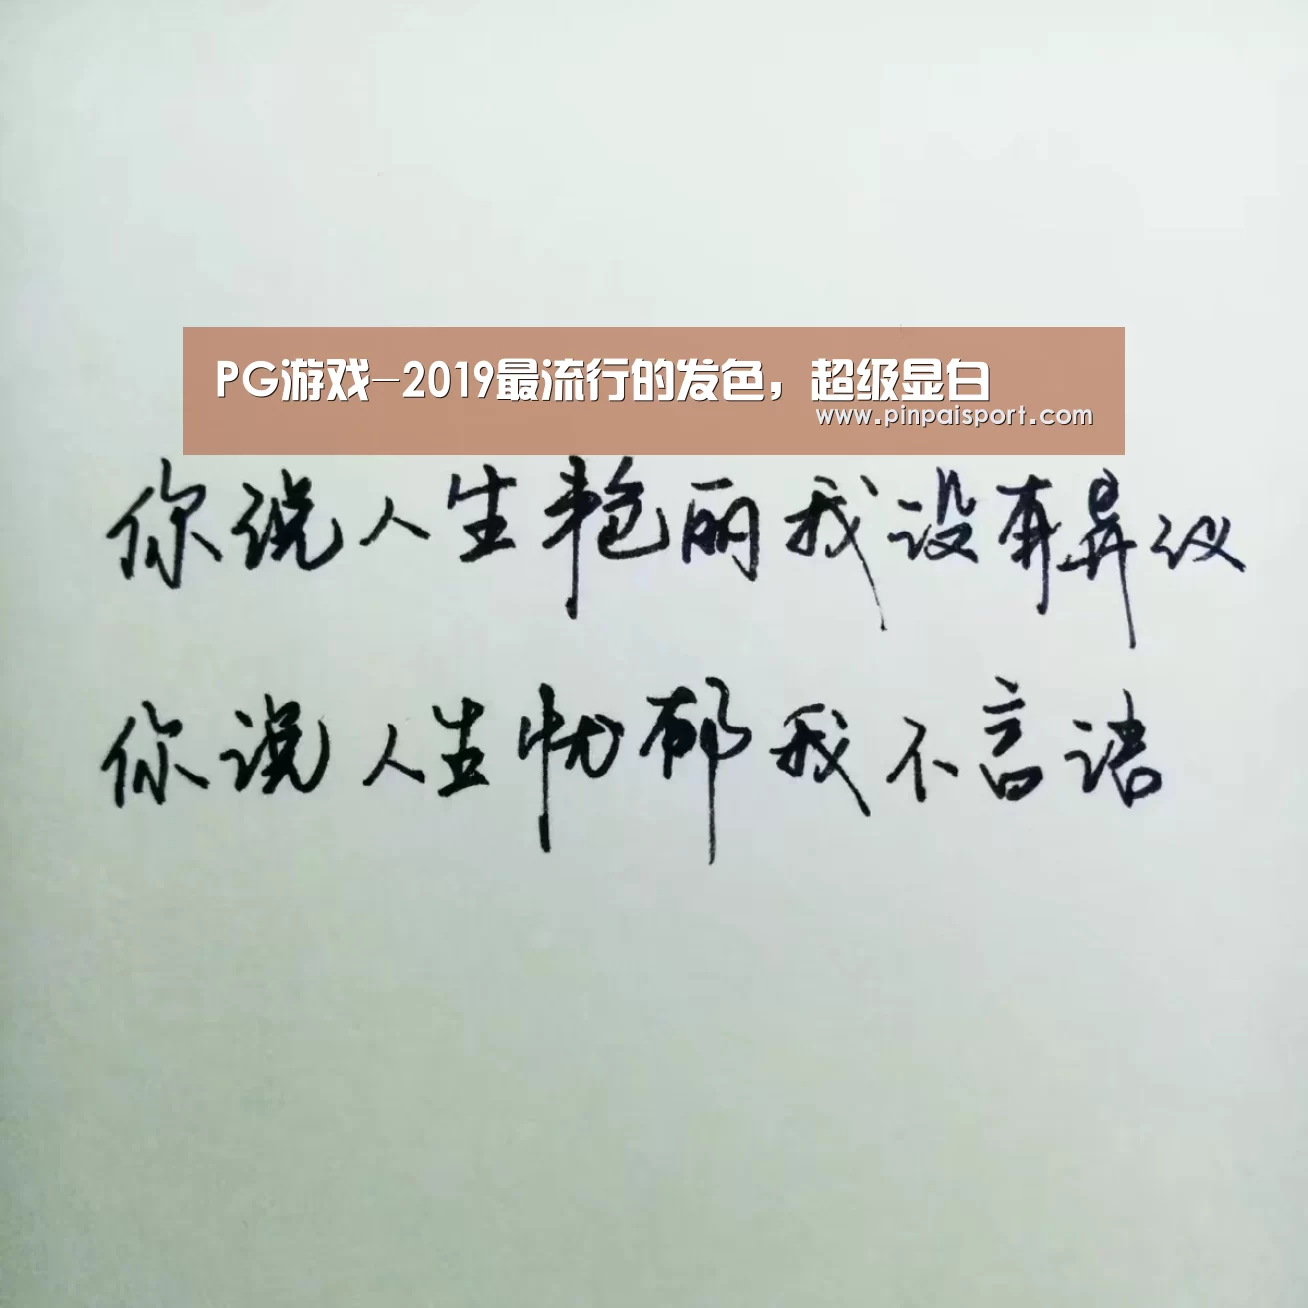 PG游戏-2019最流行的发色，超级显白
www.pinpaisport.com
你说人生艳丽我没有异议
你说人生忧郁我不言语